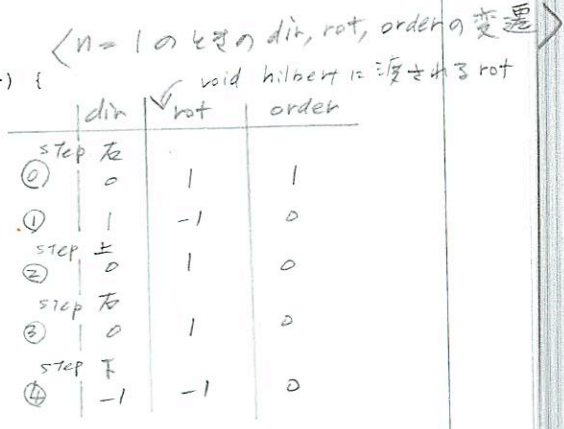 〈n=1のときのdir, rot, orderの変遷〉
-) {
void hilbertに渡されるrot
dir rot order
step 右
⓪ 0 1 1
① 1 -1 0
step 上
② 0 1 0
step 右
③ 0 1 0
step 下
④ -1 -1 0